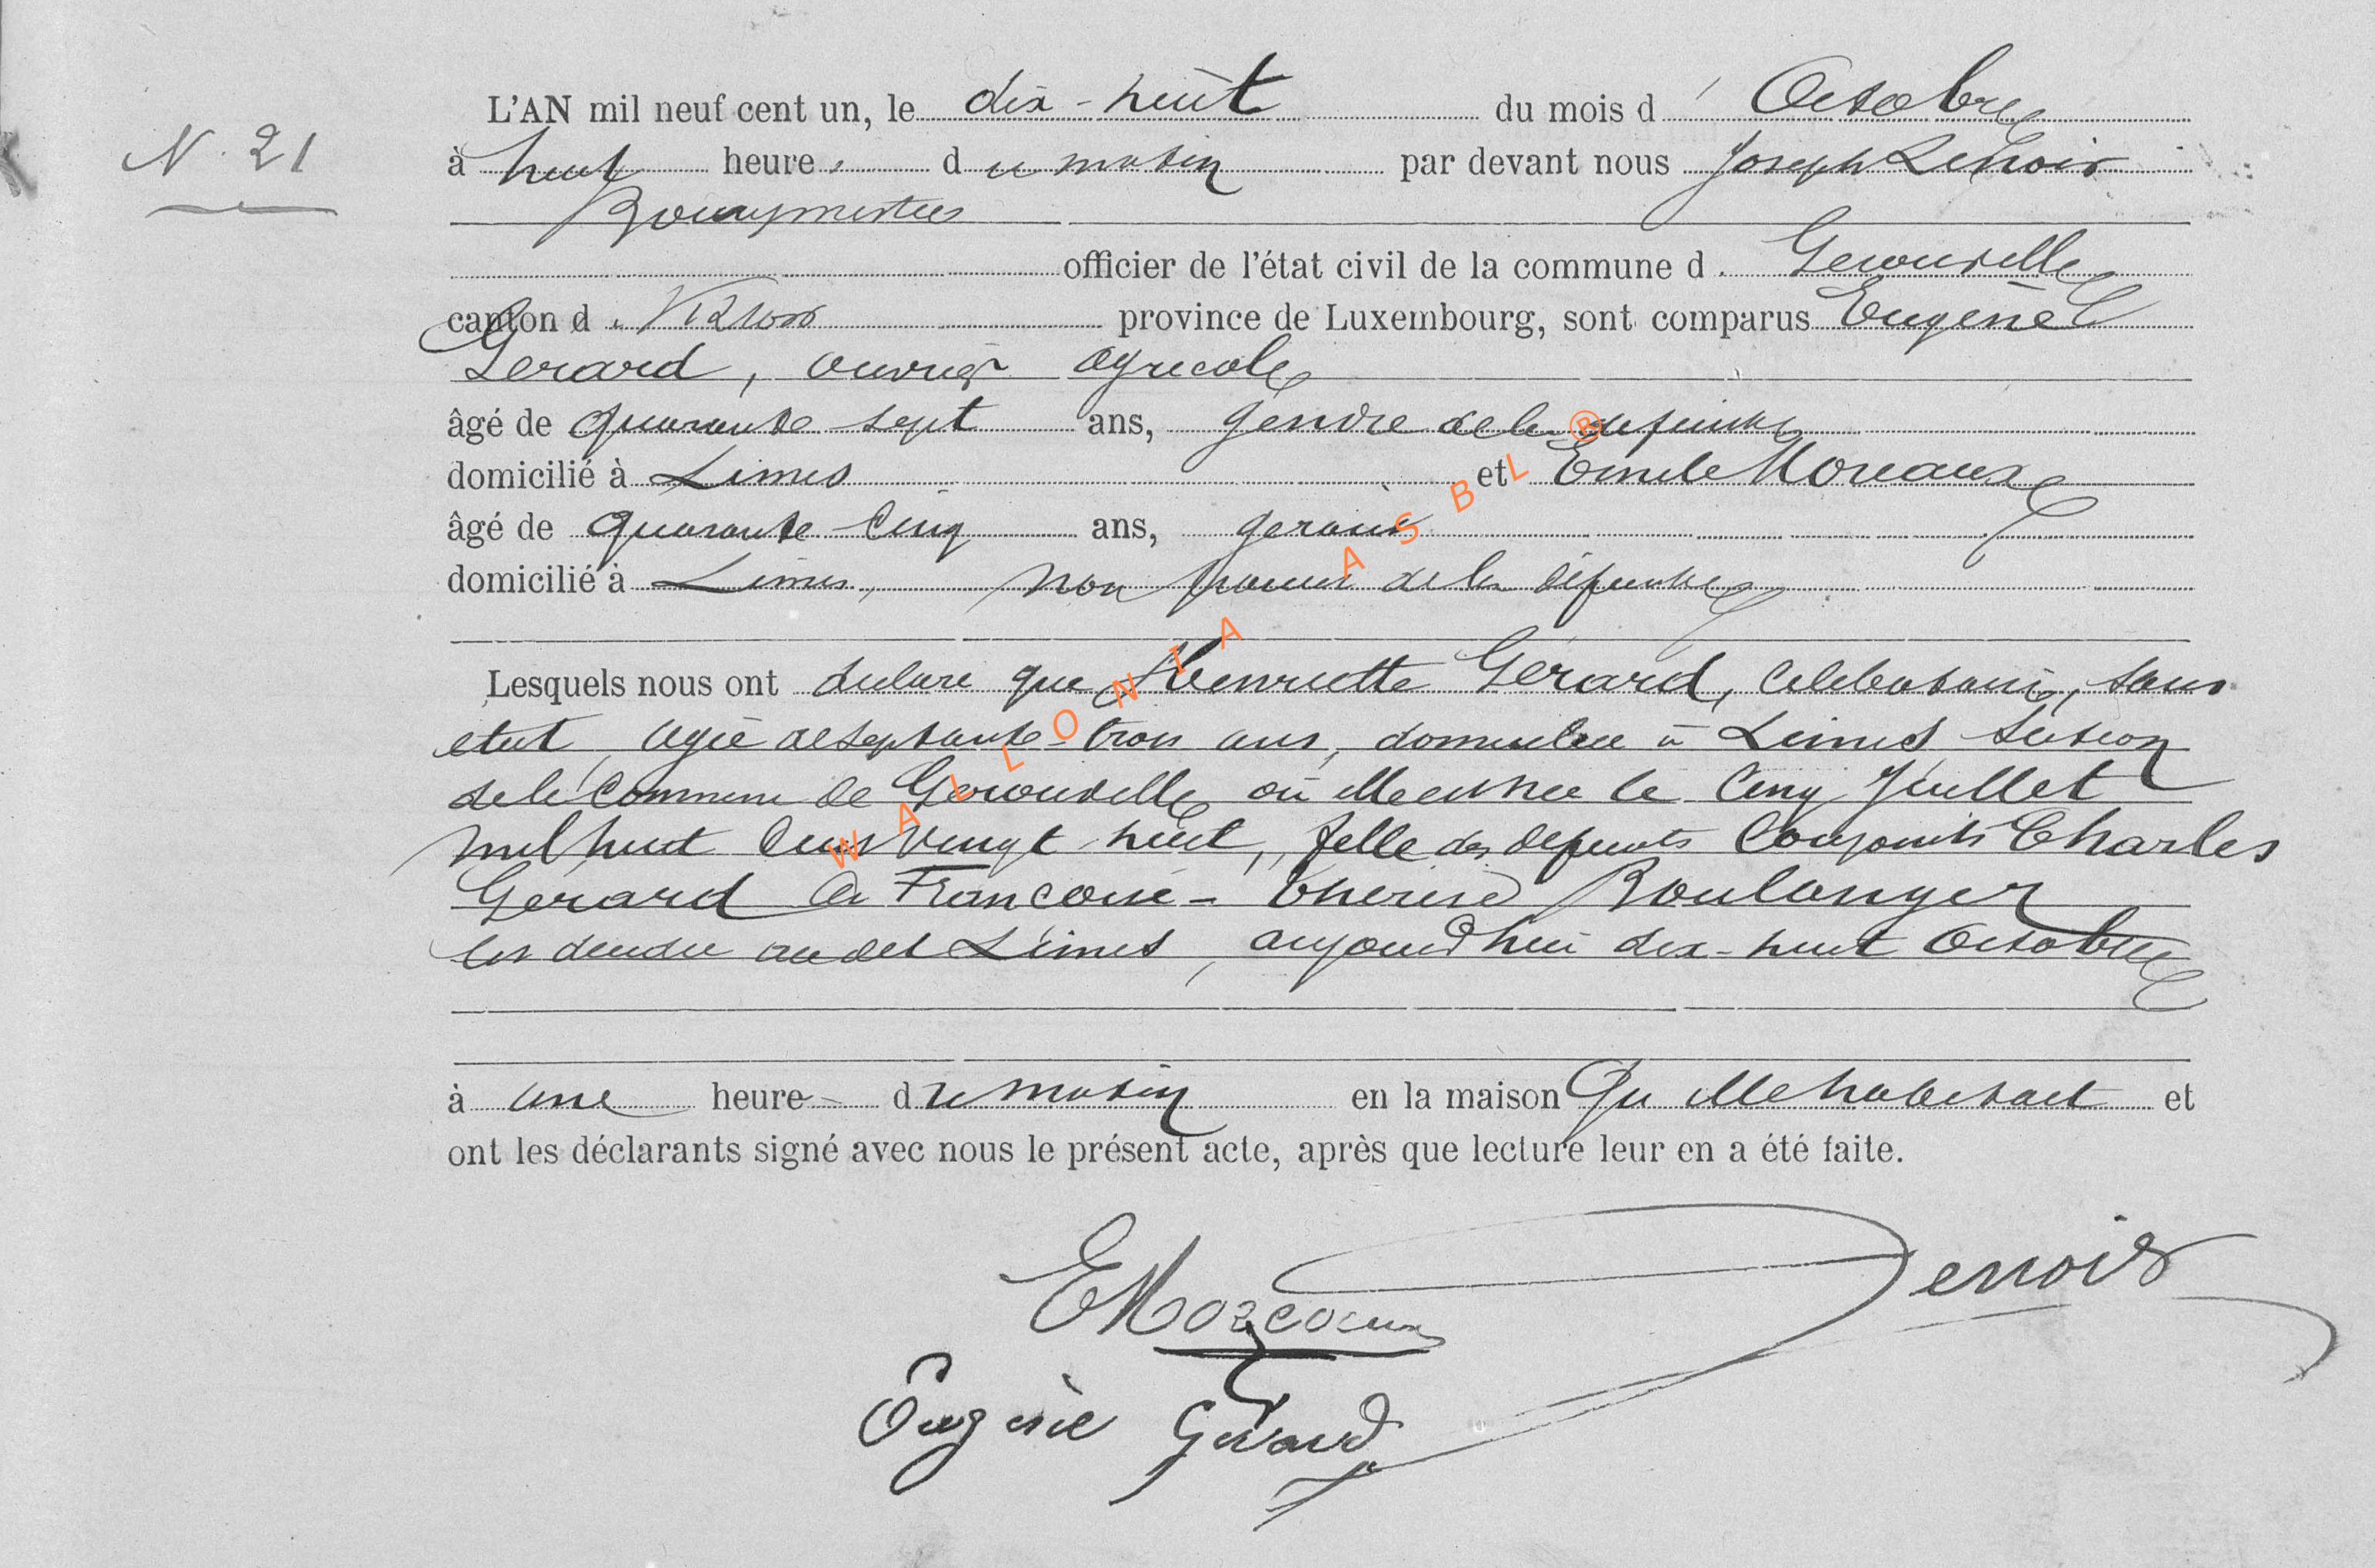 N. 21
L'AN mil neuf cent un, le dix-huit du mois d' Octobre
à huit heures du matin par devant nous Joseph Lenoir
Bourgmestre
officier de l'état civil de la commune de Gerouville
canton de Virton province de Luxembourg, sont comparus Eugène
Gerard, ouvrier agricole
âgé de quarante sept ans, gendre de la defunte
domicilié à Limes et Emile Moreaux
âgé de quarante cinq ans,
domicilié à Limes, non parent de la défunte
Lesquels nous ont declaré que Henriette Gerard, celebataire, sans
etat, agée de septante-trois ans, domiciliée à Limes section
de la commune de Gerouville où elle est née le cinq Juillet
mil huit cent vingt huit, fille des defunts conjoints Charles
Gerard et Francoise-Therese Boulanger
est décédée audit Limes, aujourd'hui dix-huit Octobre
à une heure du matin en la maison qu'elle habitait et
ont les déclarants signé avec nous le présent acte, après que lecture leur en a été faite.
Lenoir
EMoreaux
Eugène Gerard
WALLONIA ASBL ®